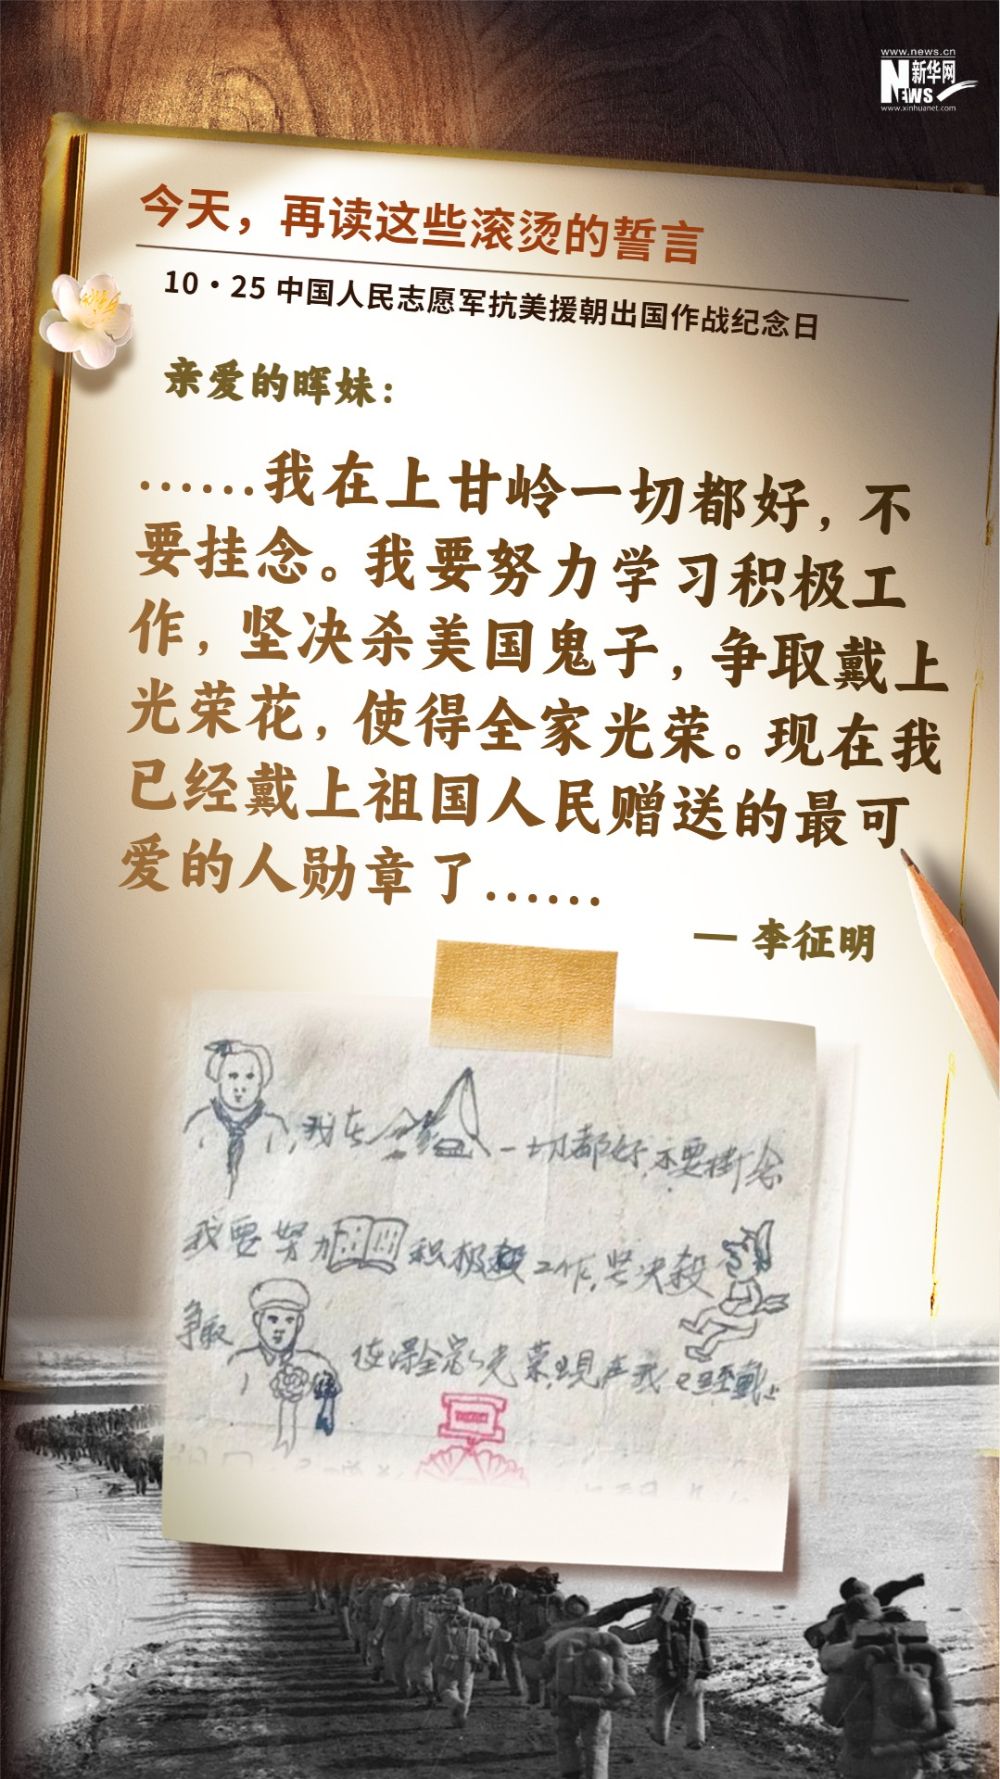 www.news.cn
NEWS 新华网
www.xinhuanet.com
今天，再读这些滚烫的誓言
10·25 中国人民志愿军抗美援朝出国作战纪念日
亲爱的晖妹：
……我在上甘岭一切都好，不
要挂念。我要努力学习积极工
作，坚决杀美国鬼子，争取戴上
光荣花，使得全家光荣。现在我
已经戴上祖国人民赠送的最可
爱的人勋章了……
— 李征明
我在 一切都好 不要掛念
我要努力 积极 工作 坚决殺
争取 使得全家光荣 現在我已經戴上